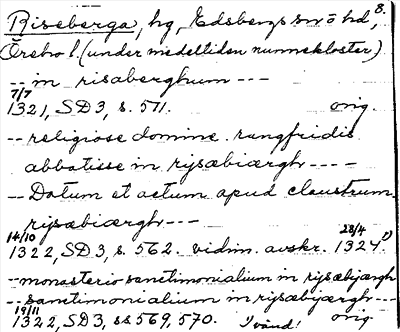 8.
Riseberga, hg, Edsbergs sn o hd,
Örebro l. (under medeltiden nunnekloster)
-- in risaberghum ---
7/7
1321, SD 3, s. 571. orig.
-- religiose domine rangfridis
abbatisse in rysæbiærgh ----
-- Datum et actum apud claustrum
rysæbiærgh ---
14/10 28/4 1)
1322, SD 3, s. 562. vidim. avskr. 1324.
-- monasterio sanctimonialium in rysæbyærgh
-- sanctimonialium in rysæbyærgh ---
19/11
1322, SD 3, ss 569, 570. orig
Vänd!